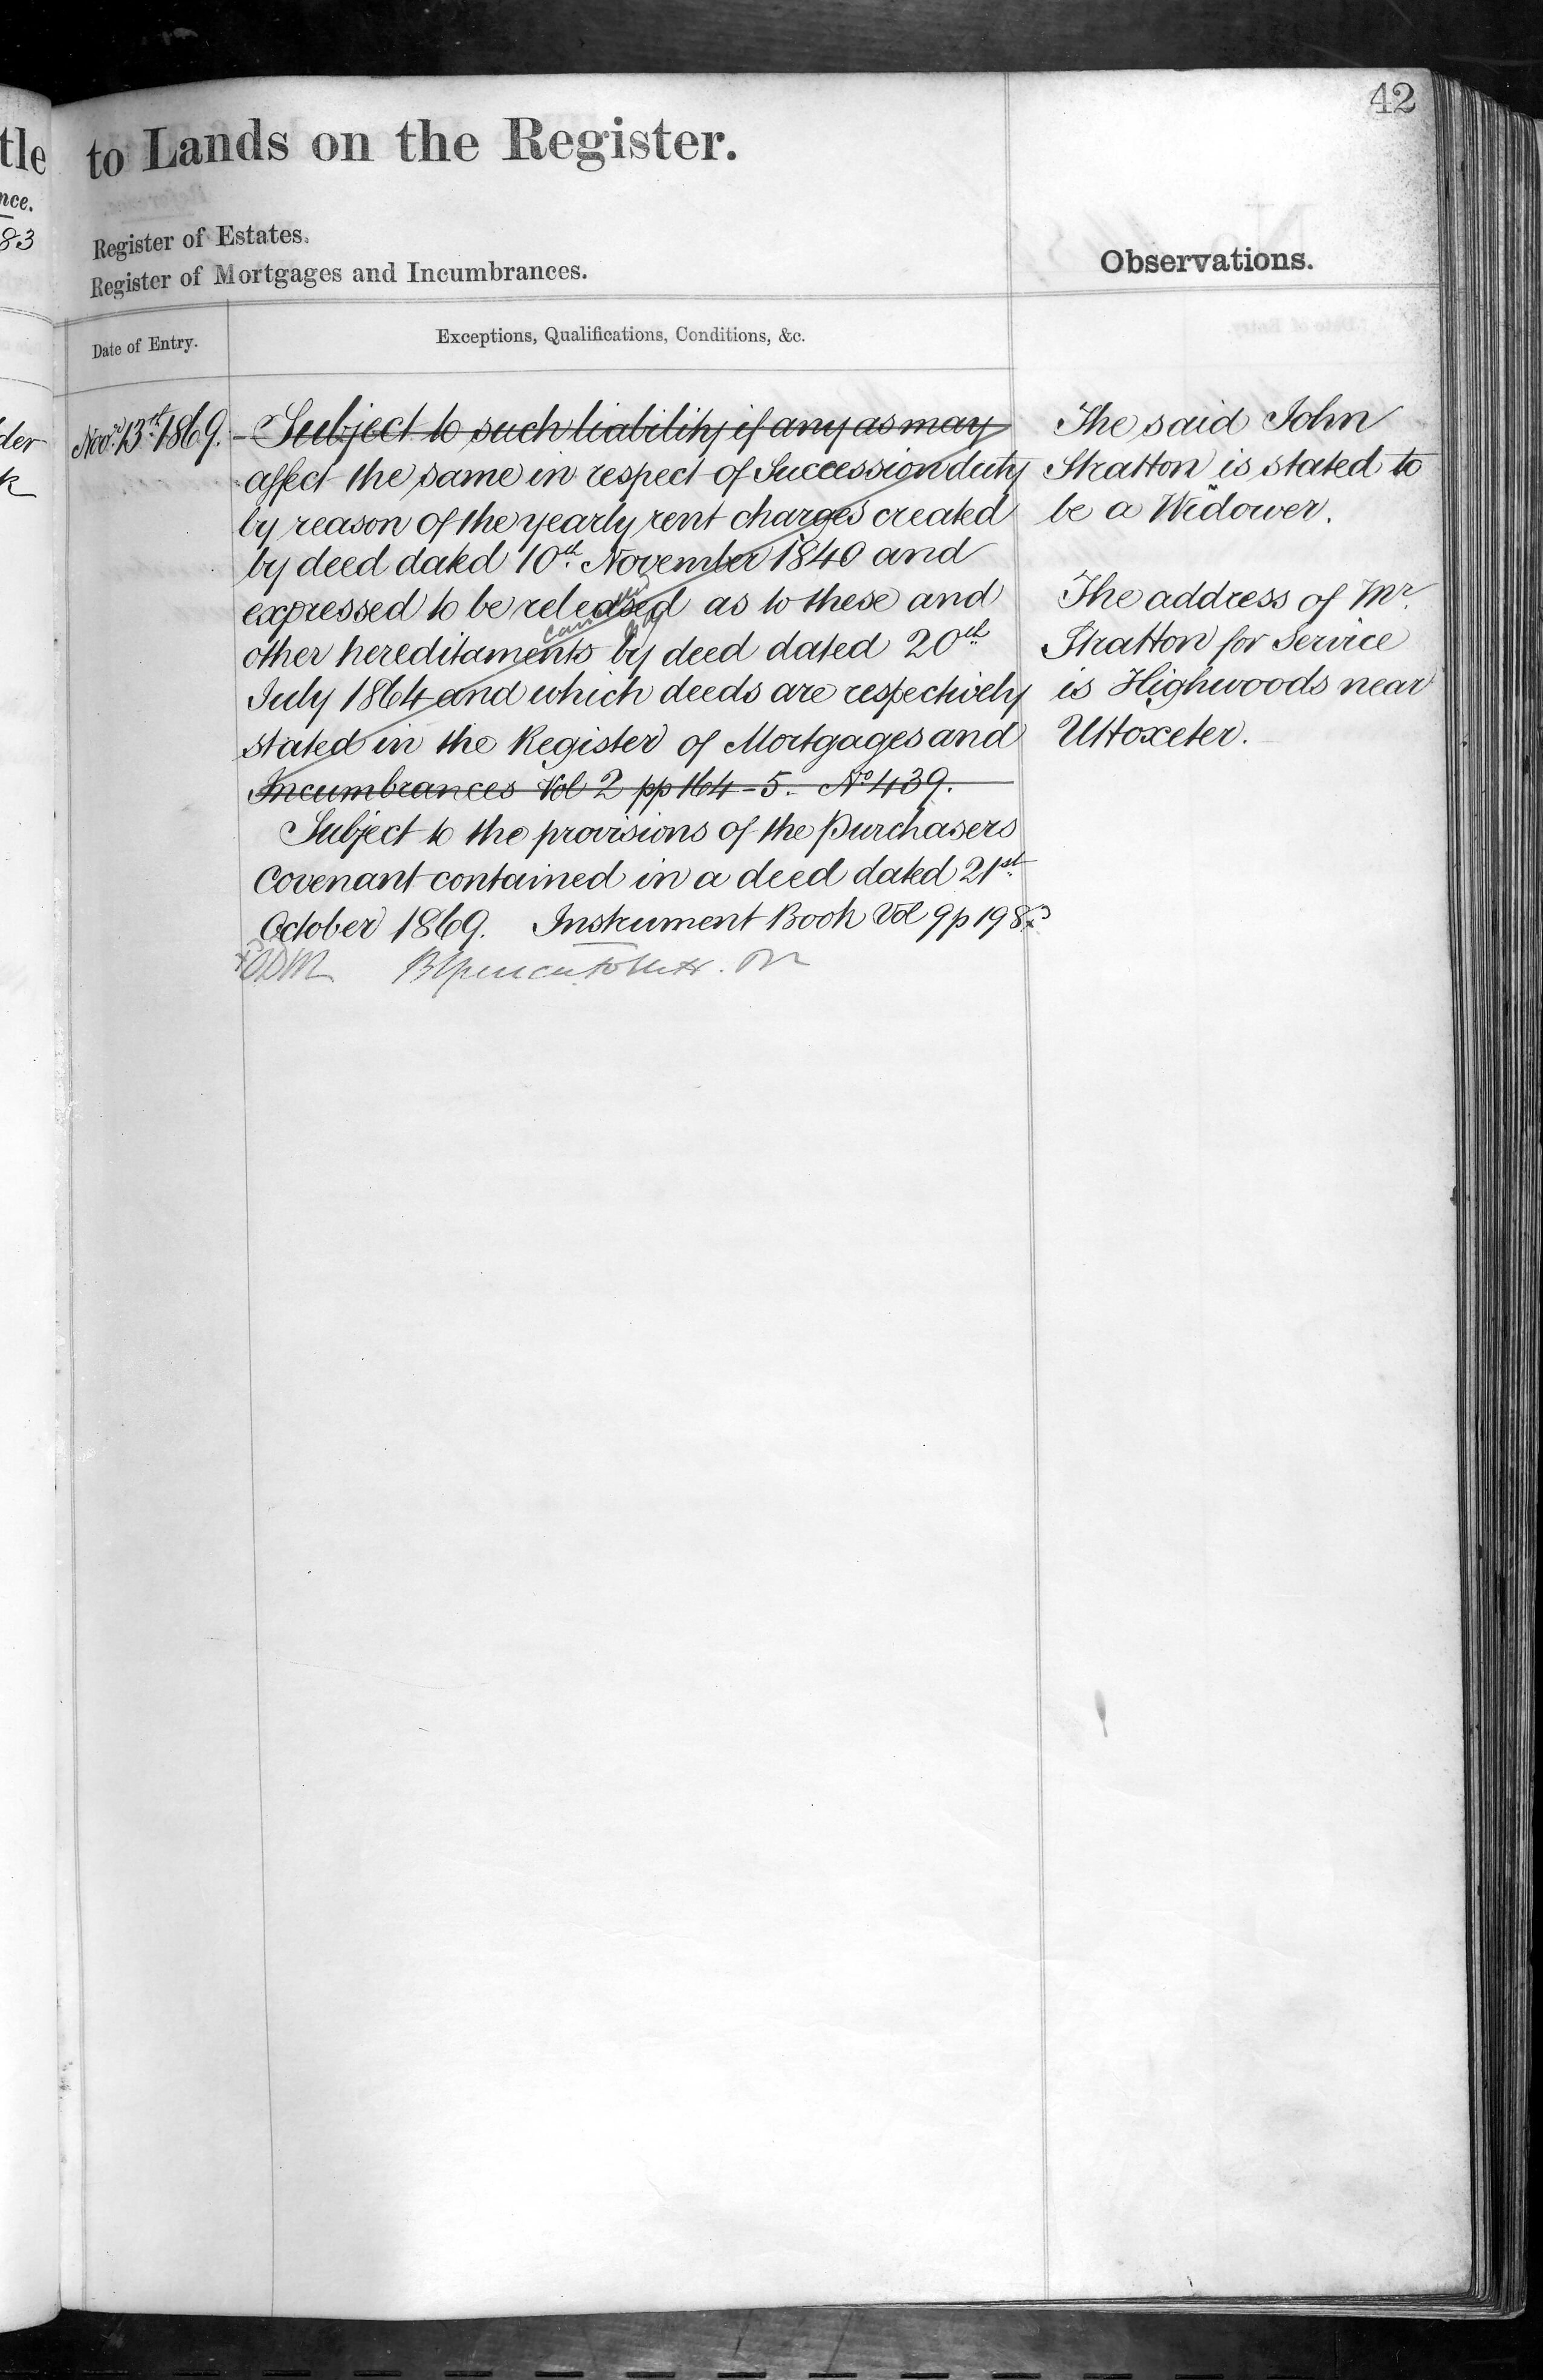 42
tle
nce.
83
der
k
to Lands on the Register.
Register of Estates.
Register of Mortgages and Incumbrances.
Observations.
Date of Entry.
Exceptions, Qualifications, Conditions, &c.
Novr. 13th 1869.
Subject to such liability if any as may
affect the same in respect of Succession duty
by reason of the yearly rent charges created
by deed dated 10th November 1840 and
expressed to be released as to these and
other hereditaments by deed dated 20th
July 1864 and which deeds are respectively
stated in the Register of Mortgages and
Incumbrances Vol 2 pp 164-5. No 439.
Subject to the provisions of the Purchasers
Covenant contained in a deed dated 21st
October 1869. Instrument Book Vol 9 p 198
The said John
Stratton is stated to
be a Widower.
The address of Mr.
Stratton for Service
is Highwoods near
Uttoxeter.